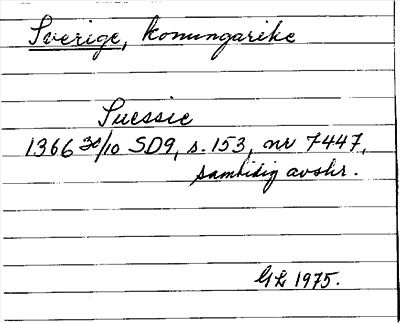 Sverige, konungarike
Suessie
1366 30/10 SD9, s. 153, nr 7447,
samtidig avskr.
GL 1975.